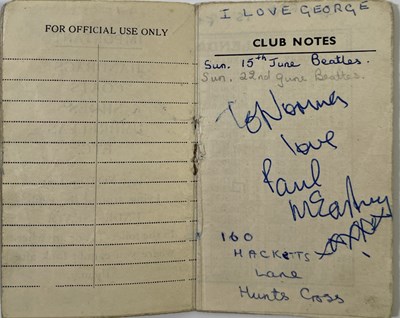 FOR OFFICIAL USE ONLY
I LOVE GEORGE
CLUB NOTES
Sun. 15th June Beatles.
Sun. 22nd June Beatles.
To Norma
love
Paul
McCartney
xxxx
160
HACKETTS
Lane
Hunts Cross